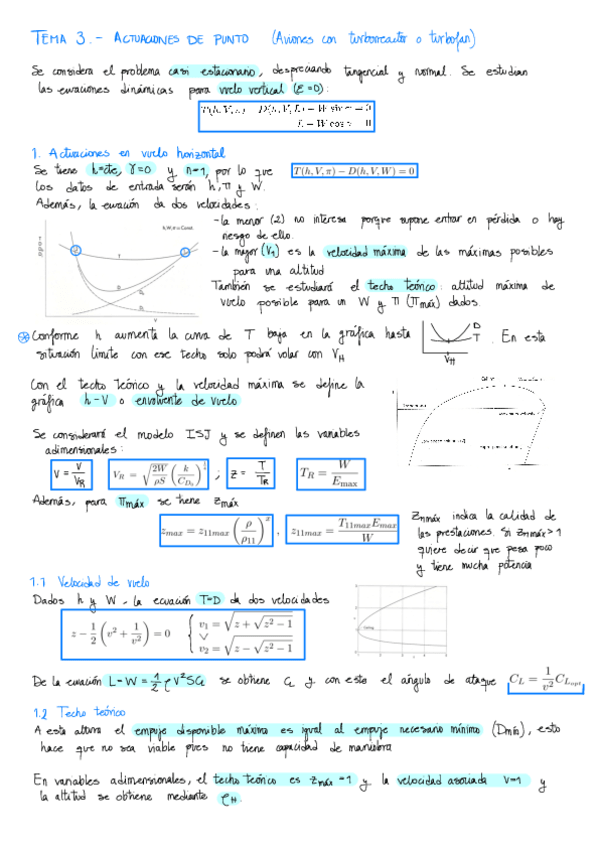 TEMA 3.- ACTUACIONES DE PUNTO (Aviones con turborreactor o turbofan)
Se considera el problema casi estacionario, despreciando tangencial y normal. Se estudian
las ecuaciones dinámicas para vuelo vertical (ε=0):
T(h,V,π) − D(h,V,L) − W sin γ = 0
L − W cos γ = 0
1. Actuaciones en vuelo horizontal
Se tiene h=cte, γ=0 y n=1, por lo que T(h,V,π) − D(h,V,W) = 0
los datos de entrada serán h, π y W.
Además, la ecuación da dos velocidades:
- la menor (2) no interesa porque supone entrar en pérdida o hay
riesgo de ello.
- la mayor (V1) es la velocidad máxima de las máximas posibles
para una altitud
También se estudiará el techo teórico: altitud máxima de
vuelo posible para un W y π (πmáx) dados.
h,W,π = Const.
T
D
V
Conforme h aumenta la curva de T baja en la gráfica hasta
D
T
VH
. En esta
situación límite con ese techo solo podrá volar con VH
Con el techo teórico y la velocidad máxima se define la
gráfica h-V o envolvente de vuelo
Se considerará el modelo ISJ y se definen las variables
adimensionales:
v = V/VR
VR = √(2W/ρS) (k/CD0)^(1/4) ;
z = T/TR
TR = W/Emax
Además, para πmáx se tiene zmáx
zmax = z11max (ρ/ρ11)^x , z11max = T11max Emax / W
zmáx indica la calidad de
las prestaciones. Si zmáx>1
quiere decir que pesa poco
y tiene mucha potencia
1.1 Velocidad de vuelo
Dados h y W, la ecuación T=D da dos velocidades
z − 1/2 (v² + 1/v²) = 0
v1 = √(z + √(z² − 1))
∨
v2 = √(z − √(z² − 1))
De la ecuación L=W=1/2 ρV²SCL se obtiene CL y con esto el ángulo de ataque CL = 1/v² CLopt
1.2 Techo teórico
A esta altura el empuje disponible máximo es igual al empuje necesario mínimo (Dmín), esto
hace que no sea viable pues no tiene capacidad de maniobra
En variables adimensionales, el techo teórico es zmáx=1 y la velocidad asociada v=1 y
la altitud se obtiene mediante ρH.